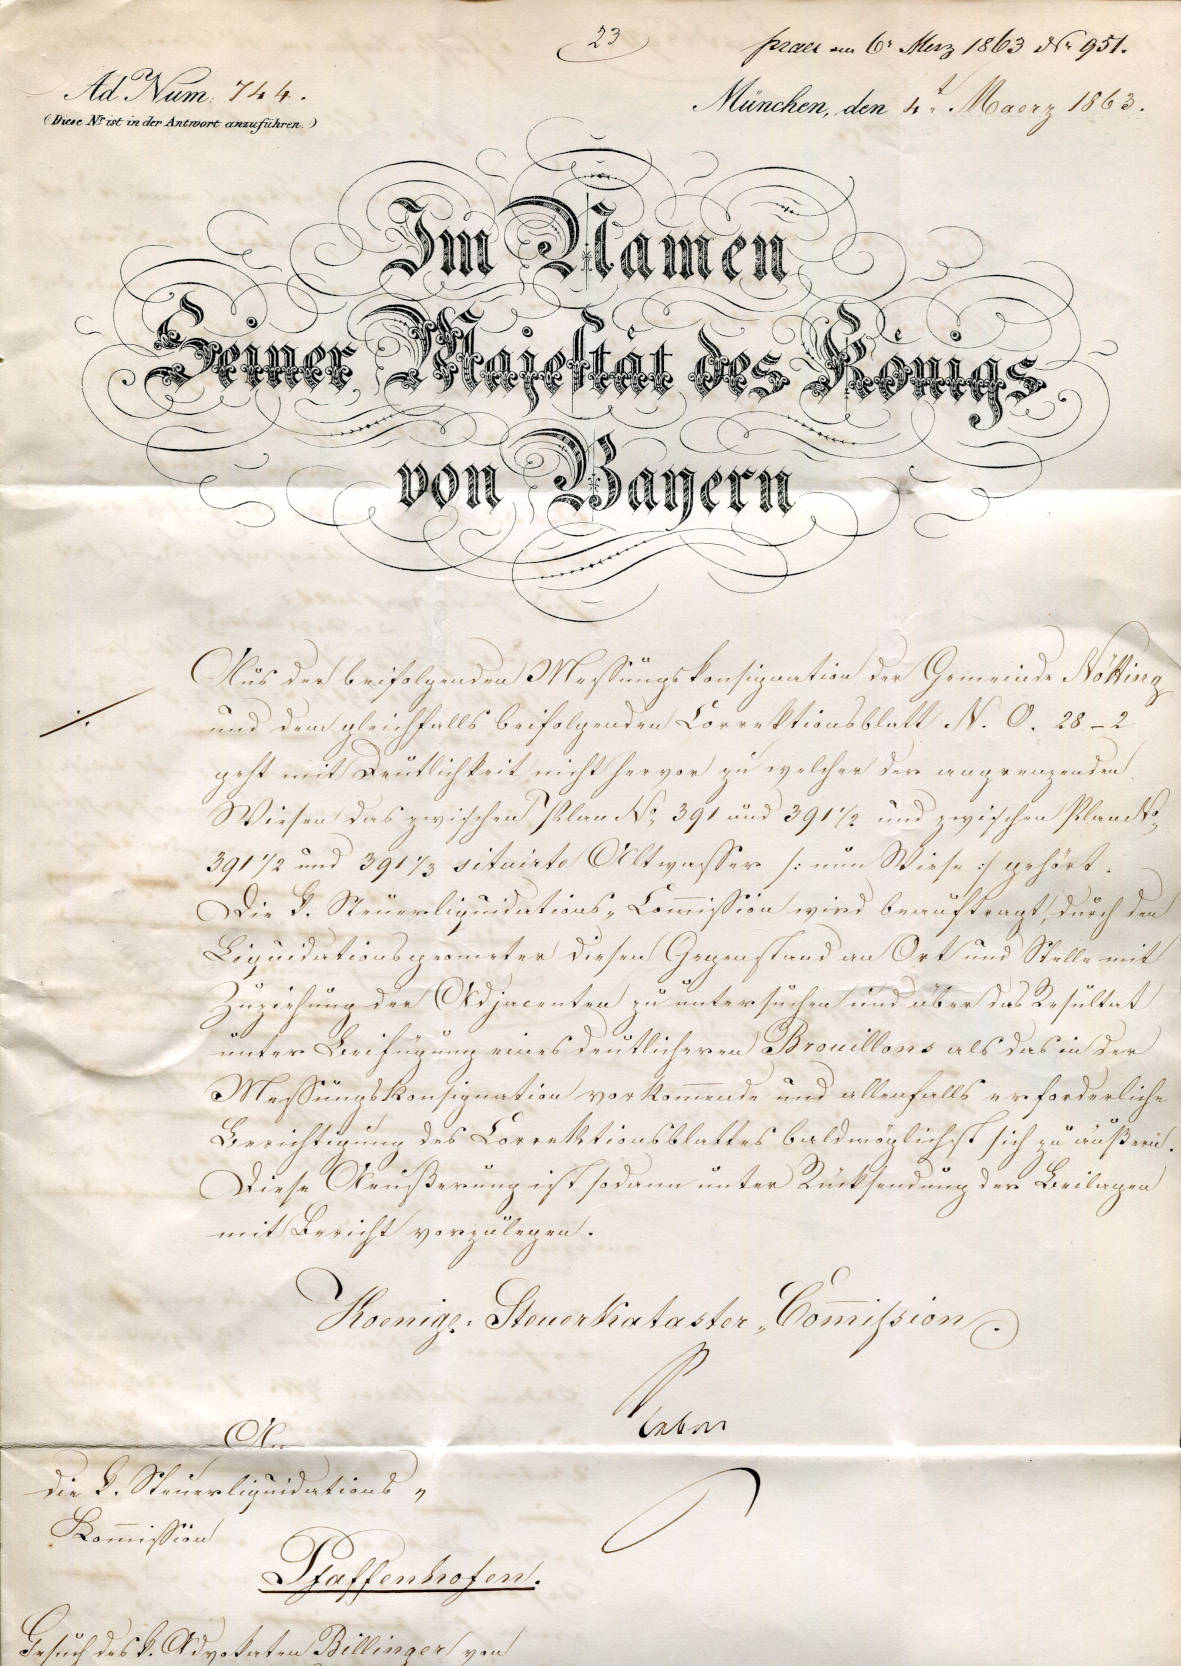 23
praes. am 6t Merz 1863 Nr 951.
Ad Num. 744.
München, den 4.t Maerz 1863.
(Diese Nr ist in der Antwort anzuführen.)
Im Namen
Seiner Majestät des Königs
von Bayern
Aus der beifolgenden Messungskonsignation der Gemeinde Nötting
und dem gleichfalls beifolgenden Correktionsblatt N. O. 28–2
geht mit Deutlichkeit nicht hervor zu welcher der angrenzenden
Wiesen das zwischen Plan No. 391 und 391 1/2 und zwischen Plan No.
391 1/2 und 391 1/3 situirte Altwasser /: nun Wiese :/ gehört.
Die k. Steuerliquidations-Commission wird beauftragt, durch den
Liquidationsgeometer diesen Gegenstand an Ort und Stelle mit
Zuziehung der Adjacenten zu untersuchen und über das Resultat
unter Beifügung eines deutlicheren Brouillons als das in der
Messungskonsignation vorkommende und allenfalls erforderliche
Berichtigung des Correktionsblattes baldmöglichst sich zu äußern.
Diese Aeußerung ist sodann unter Rücksendung der Beilagen
mit Bericht vorzulegen.
Koenigl. Steuerkataster-Commission.
An
die k. Steuerliquidations-
Kommission
Pfaffenhofen.
Gesuch des k. Advokaten Billinger von